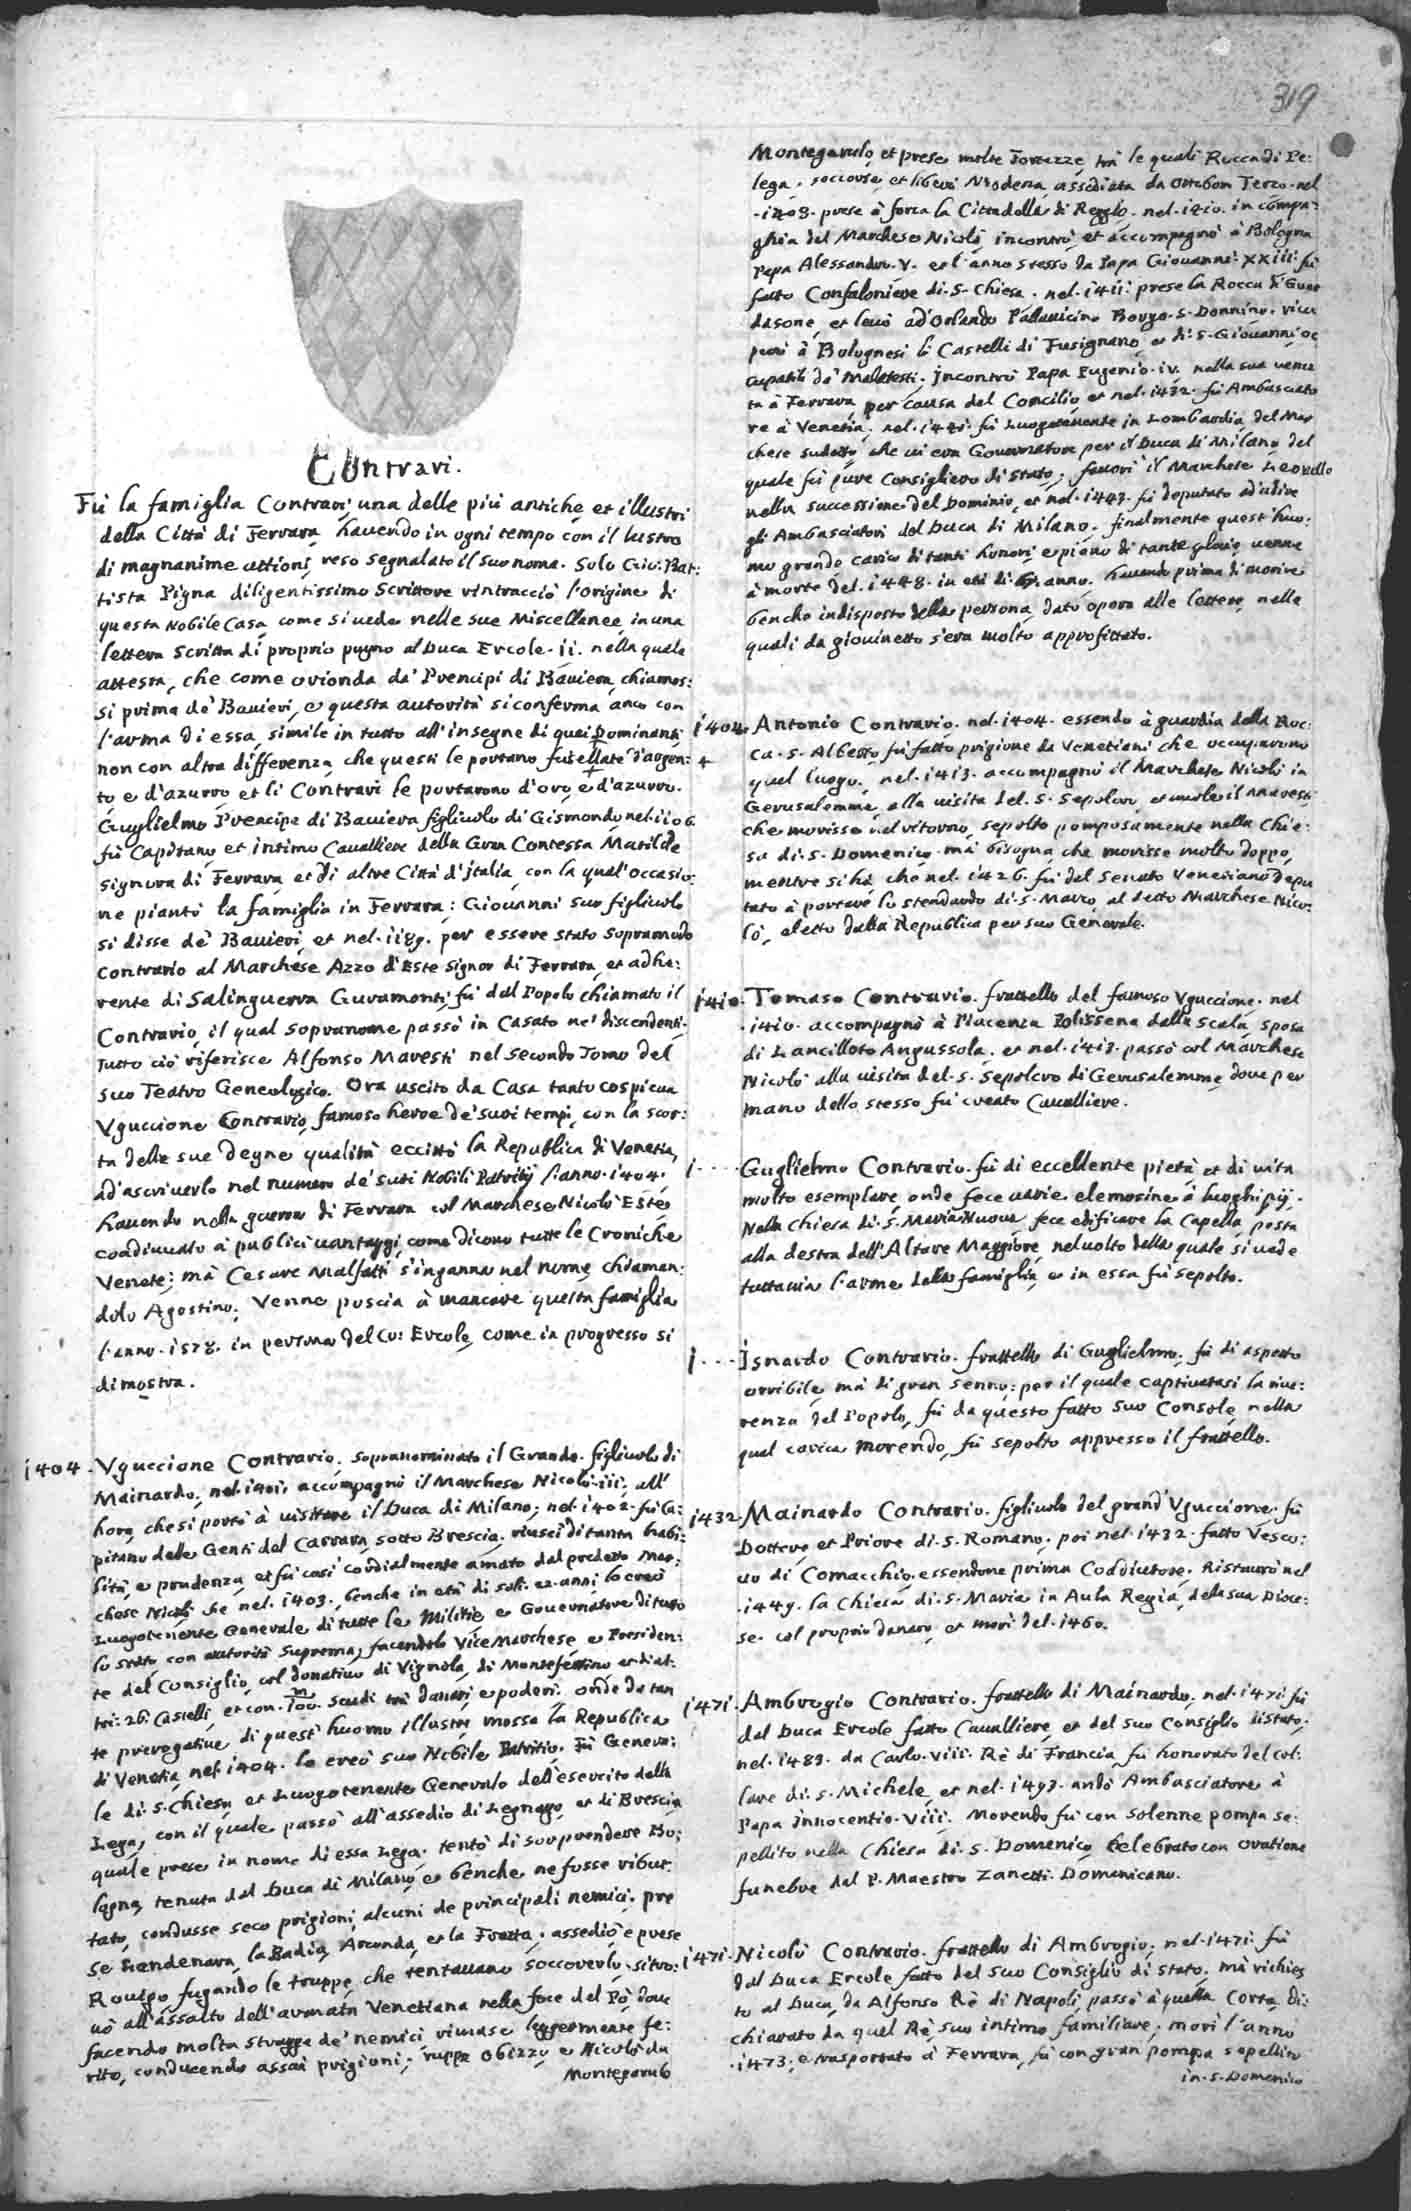 319
Contrari.
Fù la famiglia Contrari una delle più antiche et illustri
della Città di Ferrara, havendo in ogni tempo con il lustro
di magnanime attioni reso segnalato il suo nome. Solo Gio: Bat:
tista Pigna diligentissimo scrittore rintracciò l'origine di
questa Nobile Casa come si vede nelle sue Miscellanee in una
lettera scritta di proprio pugno al Duca Ercole. ii. nella quale
attesta, che come orionda da' Prencipi di Baviera, chiamos:
si prima de' Bavieri, e questa autorità si conferma anco con
l'arma di essa simile in tutto all'insegne di quei Dominanti,
non con altra differenza, che questi le portano fusellate d'argen: +
to e d'azurro et li Contrari le portarono d'oro, e d'azurro.
Guglielmo Prencipe di Baviera figliuolo di Gismondo, nel. 1106
fù Capitano, et intimo Cavalliere della Gran Contessa Matilde
signora di Ferrara, et di altre Città d'italia, con la qual'occasio:
ne piantò la famiglia in Ferrara: Giovanni suo figliuolo
si disse de' Bavieri, et nel. 1189. per essere stato sopramodo
contrario al Marchese Azzo d'Este signor di Ferrara, et adhe:
rente di Salinguerra Guramonti, fù dal Popolo chiamato il
Contrario, il qual sopranome passò in Casato ne' discendenti.
Tutto ciò riferisce Alfonso Maresti nel secondo Tomo del
suo Teatro Geneologico. Ora uscito da Casa tanto cospicua
Uguccione Contrario, famoso heroe de' suoi tempi, con la scor:
ta delle sue degne qualità eccittò la Republica di Venetia,
ad'ascriverlo nel numero de' suoi Nobili Patritij l'anno. 1404.
havendo nella guerra di Ferrara col Marchese Nicolò Este
coadiuvato a' publici vantaggi, come dicono tutte le Croniche
Venete; mà Cesare Malfatti s'inganna nel nome, chiaman:
dolo Agostino. Venne poscia à mancare questa famiglia
l'anno. 1575. in persona del Co: Ercole, come in progresso si
dimostra.
1404. Uguccione Contrario. sopranominato il Grande. figliuolo di
Mainardo, nel. 1401. accompagnò il Marchese Nicolò. iii. all'
hora, che si portò à visitare il Duca di Milano; nel. 1402. fù Ca:
pitano delle Genti del Carrara, sotto Brescia. riuscì di tanta habi:
lità, e prudenza, et fù così cordialmente amato dal predetto Mar:
chese Nicolò che nel. 1403. benche in età di soli. 22. anni, lo creò
Luogotenente Generale di tutte le Militie, e Governatore di tutto
lo stato con autorità suprema, facendolo Vice Marchese, e Presiden:
te del Consiglio, col donativo di Vignola, di Montefestino et d'al:
tri. 26. Castelli, et con. 100. scudi trà danari, e poderi. onde da tan
te prerogative di quest'huomo illustre mossa la Republica
di Venetia, nel. 1404. lo creò suo Nobile Patritio. Fù Genera:
le di. S. Chiesa, et Luogotenente Generale dell'esercito della
Lega, con il quale passò all'assedio di Legnago, et di Brescia
quale prese in nome di essa Lega. tentò di sorprendere Bo:
logna, tenuta dal Duca di Milano, e benche ne fosse ribut:
tato, condusse seco prigioni, alcuni de principali nemici. pre
se Lendenara, la Badia, et la Fratta; assediò e prese
Rovigo fugando le truppe, che tentavano soccorerlo. si tro:
vò all'assalto dell'armata Venetiana nella foce del Pò, dove
facendo molta stragge de' nemici rimase leggermente fe:
rito, conducendo assai prigioni; ruppe Obizzo, e Nicolò da
Montegarulo
Montegarulo, et prese molte Fortezze, trà le quali Rocca di Pe:
lega. soccorse, et liberò Modena assediata da Ottobon Terzo. nel
. 1408. prese à forza la Cittadella di Reggio. nel. 1410. in compa:
ghia del Marchese Nicolò incontrò, et accompagnò à Bologna
Papa Alessandro. V. et l'anno stesso da Papa Giovanni. XXiii. fù
fatto Confaloniere di. S. Chiesa. nel. 1411. prese la Rocca di Guar
dasone, et levò ad'Orlando Pallavicino Borgo. S. Donnino. ricu
però à Bolognesi li Castelli di Fusignano, et di. S. Giovanni, oc
cupatili da' Malatesti. incontrò Papa Eugenio. iv. nella sua venu
ta à Ferrara, per causa del Concilio, et nel. 1432. fù Ambasciato
re à Venetia. nel. 1441. fù Luogotenente in Lombardia, del Mar
chese sudetto, che vi era Governatore per il Duca di Milano, del
quale fù pure Consigliero di stato. favorì il Marchese Leonello
nella successione del Dominio, et nel. 1443. fù deputato ad'udire
gli Ambasciatori del Duca di Milano. finalmente quest'huo:
mo grande carico di tanti honori, e pieno di tante glorie, venne
à morte del. 1448. in età di anno. havendo prima di morire
benche indisposto della persona, dato opera alle lettere, nelle
quali da giovinetto s'era molto approfittato.
1404. Antonio Contrario. nel. 1404. essendo à guardia della Roc:
ca. S. Alberto, fù fatto prigione da Venetiani che occuparono
quel luogo. nel. 1413. accompagnò il Marchese Nicolò in
Gerusalemme, alla visita del. S. Sepolcro, et vuole il Maresti
che morisse nel ritorno, sepolto pomposamente nella Chie:
sa di. S. Domenico. mà bisogna, che morisse molto doppo,
mentre si hà, che nel. 1426. fù dal Senato Venetiano depu
tato à portare lo stendardo di. S. Marco al detto Marchese Nico:
lò, eletto dalla Republica per suo Generale.
1410. Tomaso Contrario. frattello del famoso Uguccione. nel
. 1410. accompagnò à Piacenza Polissena dalla Scala, sposa
di Lancilloto Angussola. et nel. 1413. passò col Marchese
Nicolò alla visita del. S. Sepolcro di Gerusalemme, dove per
mano dello stesso fù creato Cavalliere.
1.... Guglielmo Contrario. fù di eccellente pietà, et di vita
molto esemplare, onde fece varie elemosine à luoghi pij.
Nella Chiesa di. S. Maria Nuova fece edificare la Capella, posta
alla destra dell'Altare Maggiore, nel volto della quale si vede
tuttavia l'arme della famiglia, e in essa fù sepolto.
1.... Isnardo Contrario. frattello di Guglielmo. fù di aspetto
orribile, mà di gran senno: per il quale captivatasi la rive:
renza del Popolo, fù da questo fatto suo Console, nella
qual carica morendo, fù sepolto appresso il frattello.
1432. Mainardo Contrario. figliuolo del grand'Uguccione. fù
Dottore, et Priore di. S. Romano. poi nel. 1432. fatto Vesco:
vo di Comacchio. essendone prima Coddiutore. Ristaurò nel
. 1449. la Chiesa di. S. Maria in Aula Regia, della sua Dioce:
se. col proprio danaro, et morì del. 1460.
1471. Ambrogio Contrario. frattello di Mainardo. nel. 1471. fù
dal Duca Ercole fatto Cavalliere, et del suo Consiglio di stato.
nel. 1483. da Carlo. viii. Rè di Francia, fù honorato del col:
lare di. S. Michele, et nel. 1493. andò Ambasciatore à
Papa innocentio. Viii. Morendo fù con solenne pompa se:
pellito nella Chiesa di. S. Domenico celebrato con oratione
funebre dal P. Maestro Zanetti. Domenicano.
1471. Nicolò Contrario. frattello di Ambrogio. nel. 1471. fù
dal Duca Ercole fatto del suo Consiglio di stato. mà richies
to al Duca, da Alfonso Rè di Napoli, passò à quella Corte, di:
chiarato da quel Rè, suo intimo familiare. morì l'anno
. 1473; e trasportato à Ferrara, fù con gran pompa sepellito
in. S. Domenico